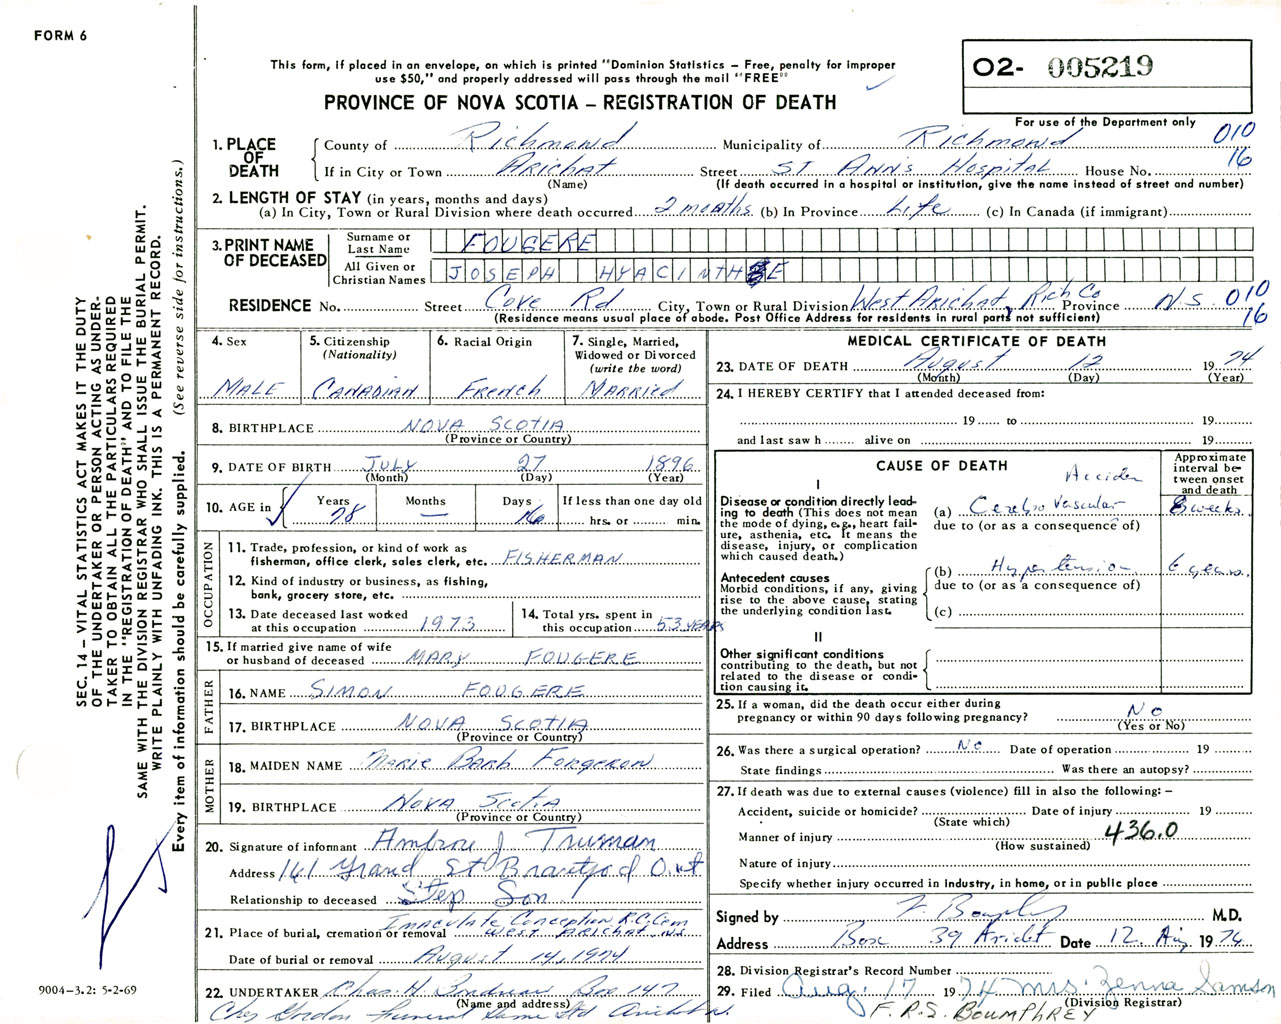 FORM 6
This form, if placed in an envelope, on which is printed "Dominion Statistics – Free, penalty for improper
use $50," and properly addressed will pass through the mail "FREE"
O2- 005219
PROVINCE OF NOVA SCOTIA – REGISTRATION OF DEATH
For use of the Department only
1. PLACE OF DEATH
County of Richmond Municipality of Richmond 010
If in City or Town Arichat Street ST ANN'S HOSPITAL House No. 16
(Name) (If death occurred in a hospital or institution, give the name instead of street and number)
2. LENGTH OF STAY (in years, months and days)
(a) In City, Town or Rural Division where death occurred 2 months (b) In Province Life (c) In Canada (if immigrant)
3. PRINT NAME OF DECEASED
Surname or Last Name FOUGERE
All Given or Christian Names JOSEPH HYACINTHE
RESIDENCE No. Street Cove Rd City, Town or Rural Division West Arichat, Rich Co Province N.S. 010
(Residence means usual place of abode. Post Office Address for residents in rural parts not sufficient) 16
4. Sex MALE
5. Citizenship (Nationality) CANADIAN
6. Racial Origin French
7. Single, Married, Widowed or Divorced (write the word) MARRIED
8. BIRTHPLACE NOVA SCOTIA
(Province or Country)
9. DATE OF BIRTH JULY 27 1896
(Month) (Day) (Year)
10. AGE in Years 78 Months — Days 16 If less than one day old
hrs. or min.
OCCUPATION
11. Trade, profession, or kind of work as
fisherman, office clerk, sales clerk, etc. FISHERMAN
12. Kind of industry or business, as fishing,
bank, grocery store, etc.
13. Date deceased last worked
at this occupation 1973
14. Total yrs. spent in
this occupation 53 YEARS
15. If married give name of wife
or husband of deceased MARY FOUGERE
FATHER
16. NAME SIMON FOUGERE
17. BIRTHPLACE NOVA SCOTIA
(Province or Country)
MOTHER
18. MAIDEN NAME Marie Barb Forgeron
19. BIRTHPLACE NOVA SCOTIA
(Province or Country)
20. Signature of informant Ambrose J Truman
Address 141 Grand St Brantford Ont
Relationship to deceased Step Son
21. Place of burial, cremation or removal Immaculate Conception R.C. Cem
WEST ARICHAT, N.S.
Date of burial or removal August 14, 1974
22. UNDERTAKER Chas. H. Boudreau Box 147
(Name and address)
Chas Gordon Funeral Home Ltd Arichat N.S.
MEDICAL CERTIFICATE OF DEATH
23. DATE OF DEATH August 12 1974
(Month) (Day) (Year)
24. I HEREBY CERTIFY that I attended deceased from:
19 to 19
and last saw h alive on 19
CAUSE OF DEATH
Approximate interval between onset and death
I
Disease or condition directly leading to death (This does not mean the mode of dying, e.g., heart failure, asthenia, etc. It means the disease, injury, or complication which caused death.)
(a) Cerebro Vascular Acciden 8 weeks
due to (or as a consequence of)
Antecedent causes
Morbid conditions, if any, giving rise to the above cause, stating the underlying condition last.
(b) Hypertension 6 years.
due to (or as a consequence of)
(c)
II
Other significant conditions
contributing to the death, but not related to the disease or condition causing it.
25. If a woman, did the death occur either during
pregnancy or within 90 days following pregnancy? NO
(Yes or No)
26. Was there a surgical operation? No Date of operation 19
State findings Was there an autopsy?
27. If death was due to external causes (violence) fill in also the following: –
Accident, suicide or homicide? Date of injury 19
(State which)
Manner of injury 436.0
(How sustained)
Nature of injury
Specify whether injury occurred in industry, in home, or in public place
Signed by F. Boumphrey M.D.
Address Box 39 Arichat Date 12 Aug 1974
28. Division Registrar's Record Number
29. Filed Aug. 17 1974 Mrs. Zenna Samson
(Division Registrar)
F. R. S. BOUMPHREY
SEC. 14 – VITAL STATISTICS ACT MAKES IT THE DUTY
OF THE UNDERTAKER OR PERSON ACTING AS UNDER-
TAKER TO OBTAIN ALL THE PARTICULARS REQUIRED
IN THE "REGISTRATION OF DEATH" AND TO FILE THE
SAME WITH THE DIVISION REGISTRAR WHO SHALL ISSUE THE BURIAL PERMIT.
WRITE PLAINLY WITH UNFADING INK. THIS IS A PERMANENT RECORD.
Every item of information should be carefully supplied. (See reverse side for instructions.)
9004–3.2: 5-2-69